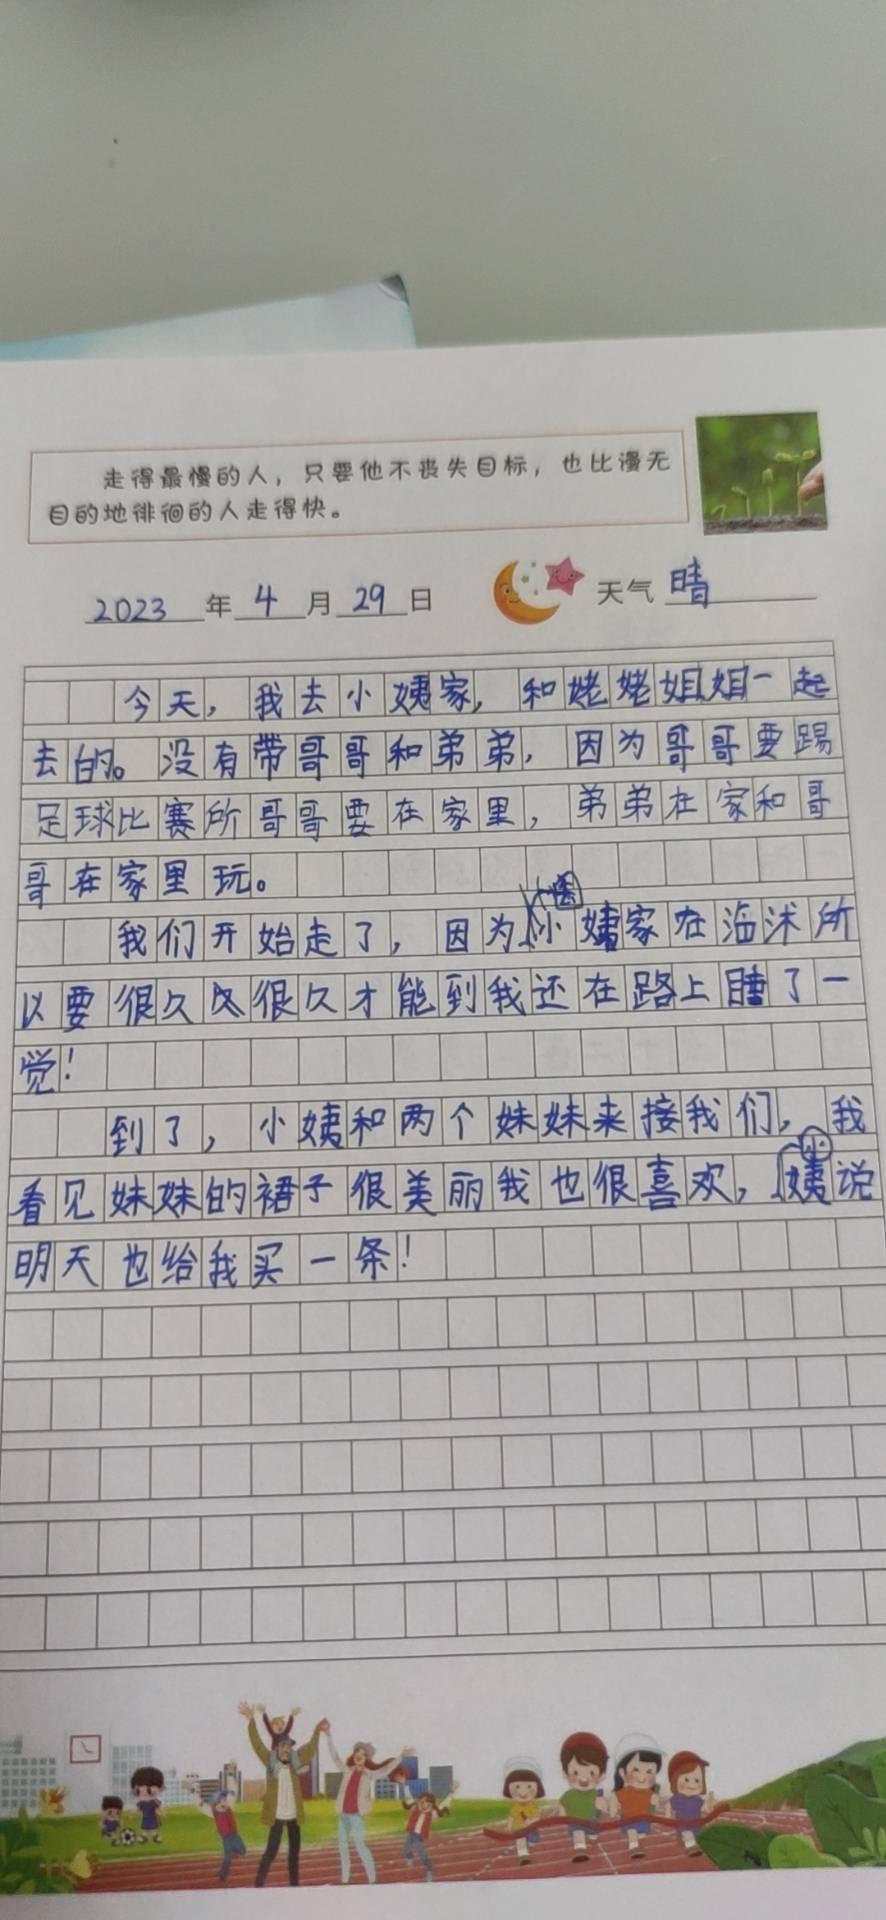 走得最慢的人，只要他不丧失目标，也比漫无
目的地徘徊的人走得快。
2023年4月29日 天气 晴
今天，我去小姨家，和姥姥姐姐一起
去的。没有带哥哥和弟弟，因为哥哥要踢
足球比赛所哥哥要在家里，弟弟在家和哥
哥在家里玩。
我们开始走了，因为小姨家在海沭所
以要很久久很久才能到我还在路上睡了一
觉！
到了，小姨和两个妹妹来接我们，我
看见妹妹的裙子很美丽我也很喜欢，小姨说
明天也给我买一条！